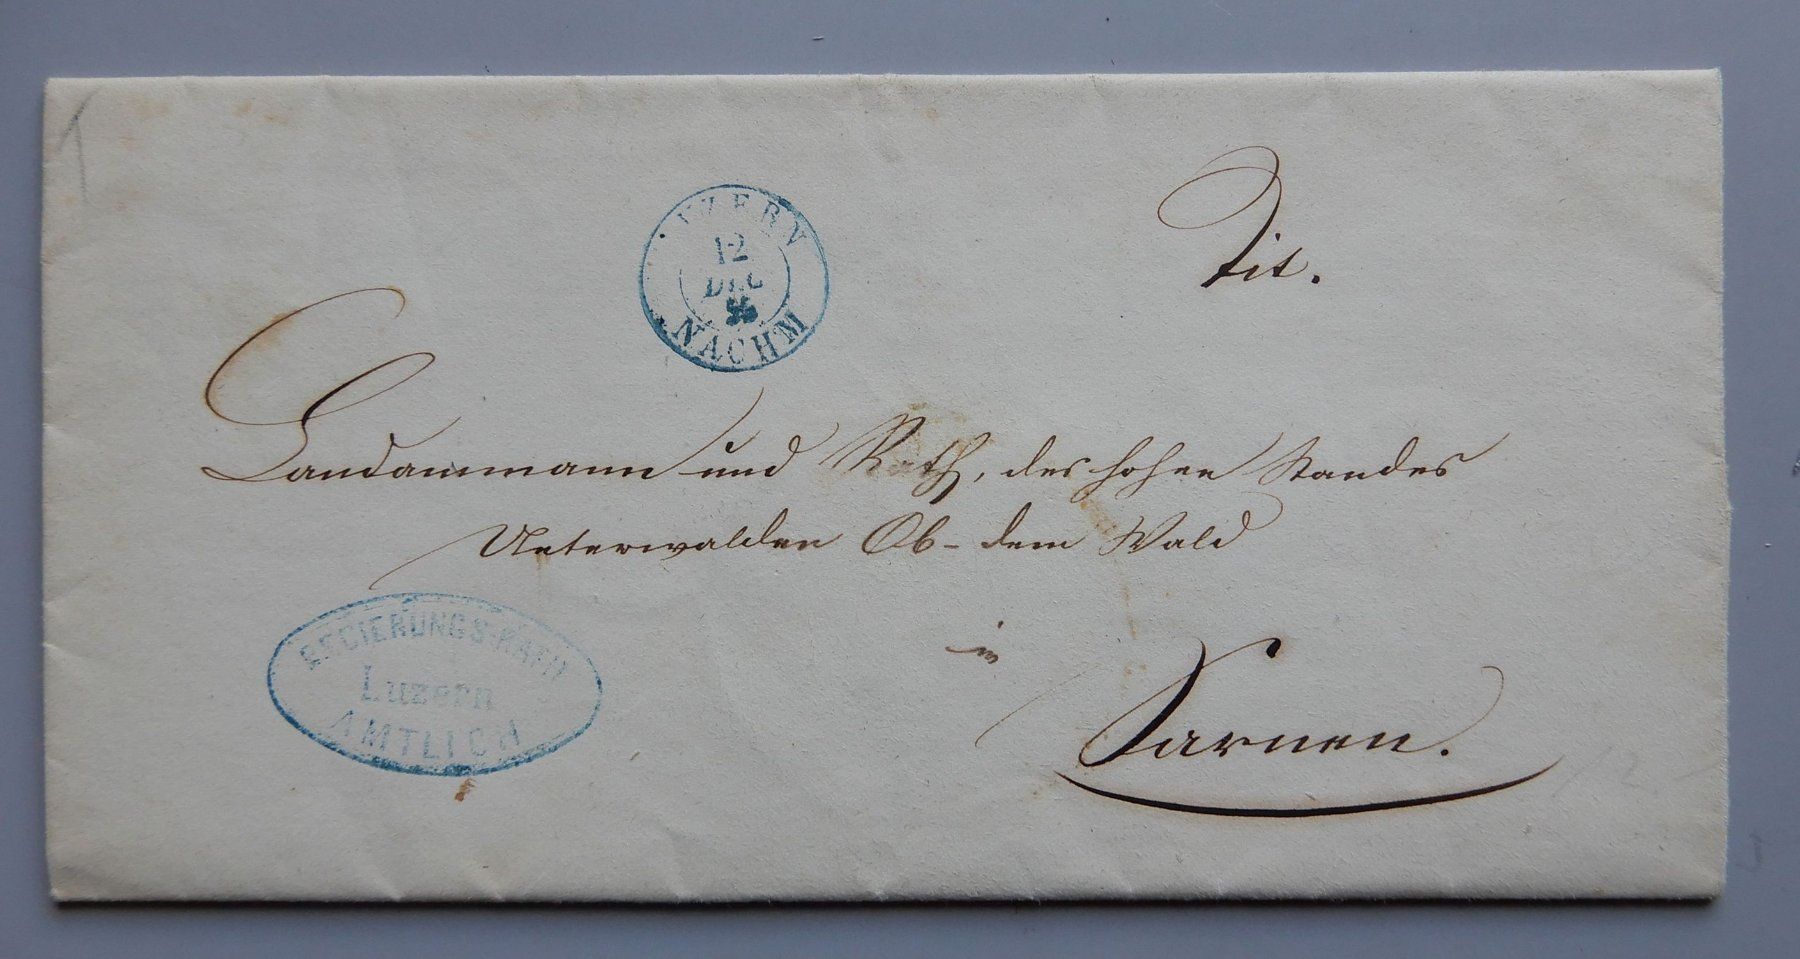 LUZERN
12
DEC
NACHM
Tit.
Landammann und Rath, des hohen Standes
Unterwalden Ob-dem Wald
in
Sarnen.
REGIERUNGS-RATH
Luzern
AMTLICH